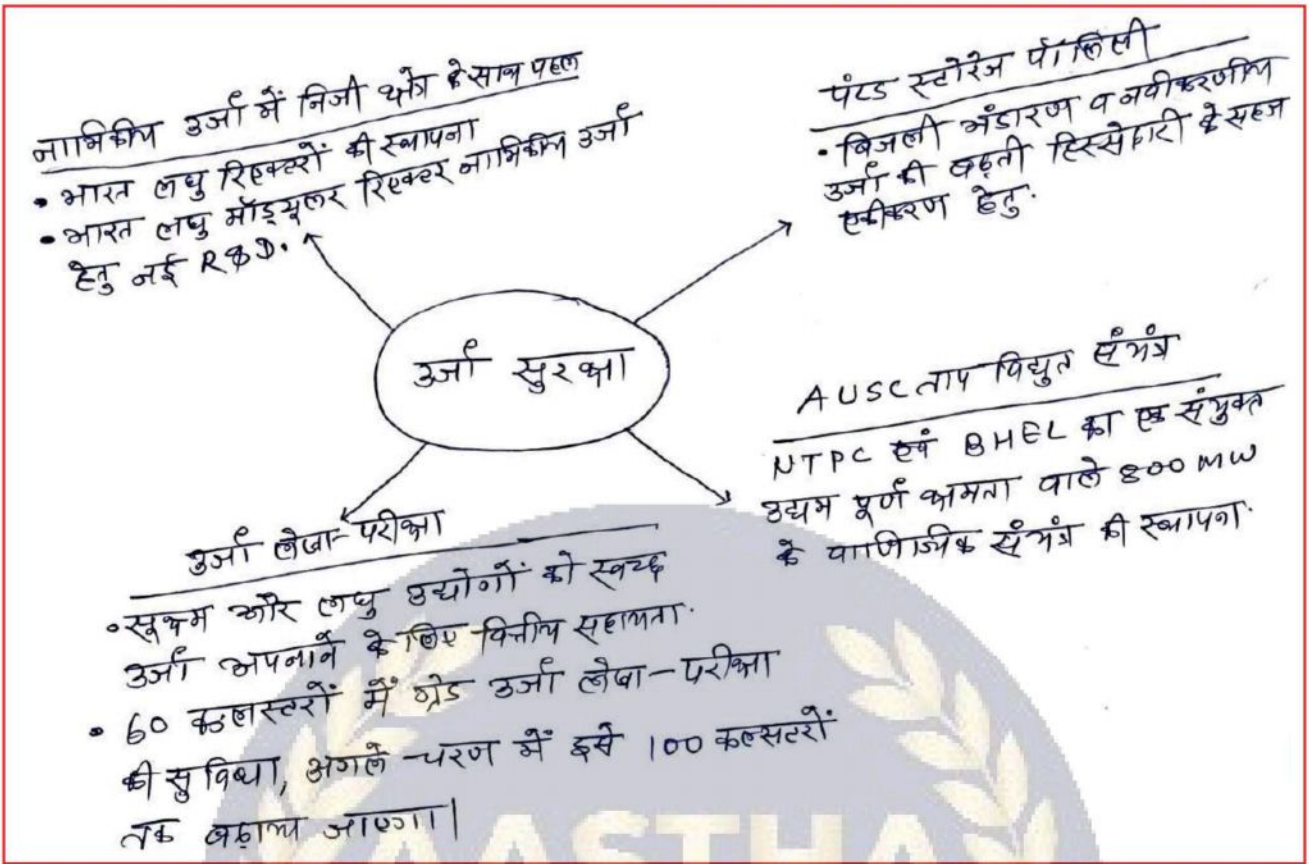 नाभिकीय उर्जा में निजी क्षेत्र के साथ पहल
• भारत लघु रिएक्टरों की स्थापना
• भारत लघु मॉड्यूलर रिएक्टर नाभिकीय उर्जा
हेतु नई R&D.
पंप्ड स्टोरेज पॉलिसी
• बिजली भंडारण व नवीकरणीय
उर्जा की बढ़ती हिस्सेदारी के सहज
एकीकरण हेतु.
उर्जा सुरक्षा
AUSC ताप विद्युत संयंत्र
NTPC एवं BHEL का एक संयुक्त
उद्यम पूर्ण क्षमता वाले 800 MW
के वाणिज्यिक संयंत्र की स्थापना.
उर्जा लेखा-परीक्षा
• सूक्ष्म और लघु उद्योगों को स्वच्छ
उर्जा अपनाने के लिए वित्तीय सहायता.
• 60 कलस्टरों में ग्रेड उर्जा लेखा-परीक्षा
की सुविधा, अगले चरण में इसे 100 कल्सटरों
तक बढ़ाया जाएगा|
AASTHA